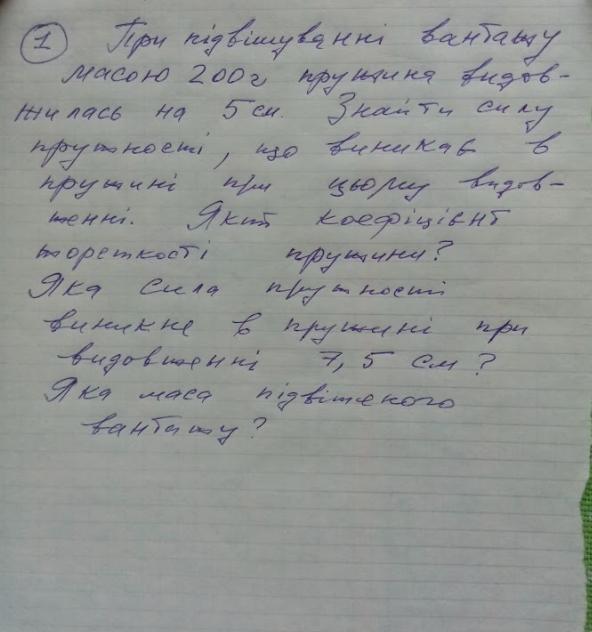 1 При підвішуванні вантажу
масою 200 г пружина видов-
жилась на 5 см. Знайти силу
пружності, що виникає в
пружині при цьому видов-
женні. Який коефіцієнт
жорсткості пружини?
Яка сила пружності
виникне в пружині при
видовженні 7,5 см?
Яка маса підвішеного
вантажу?